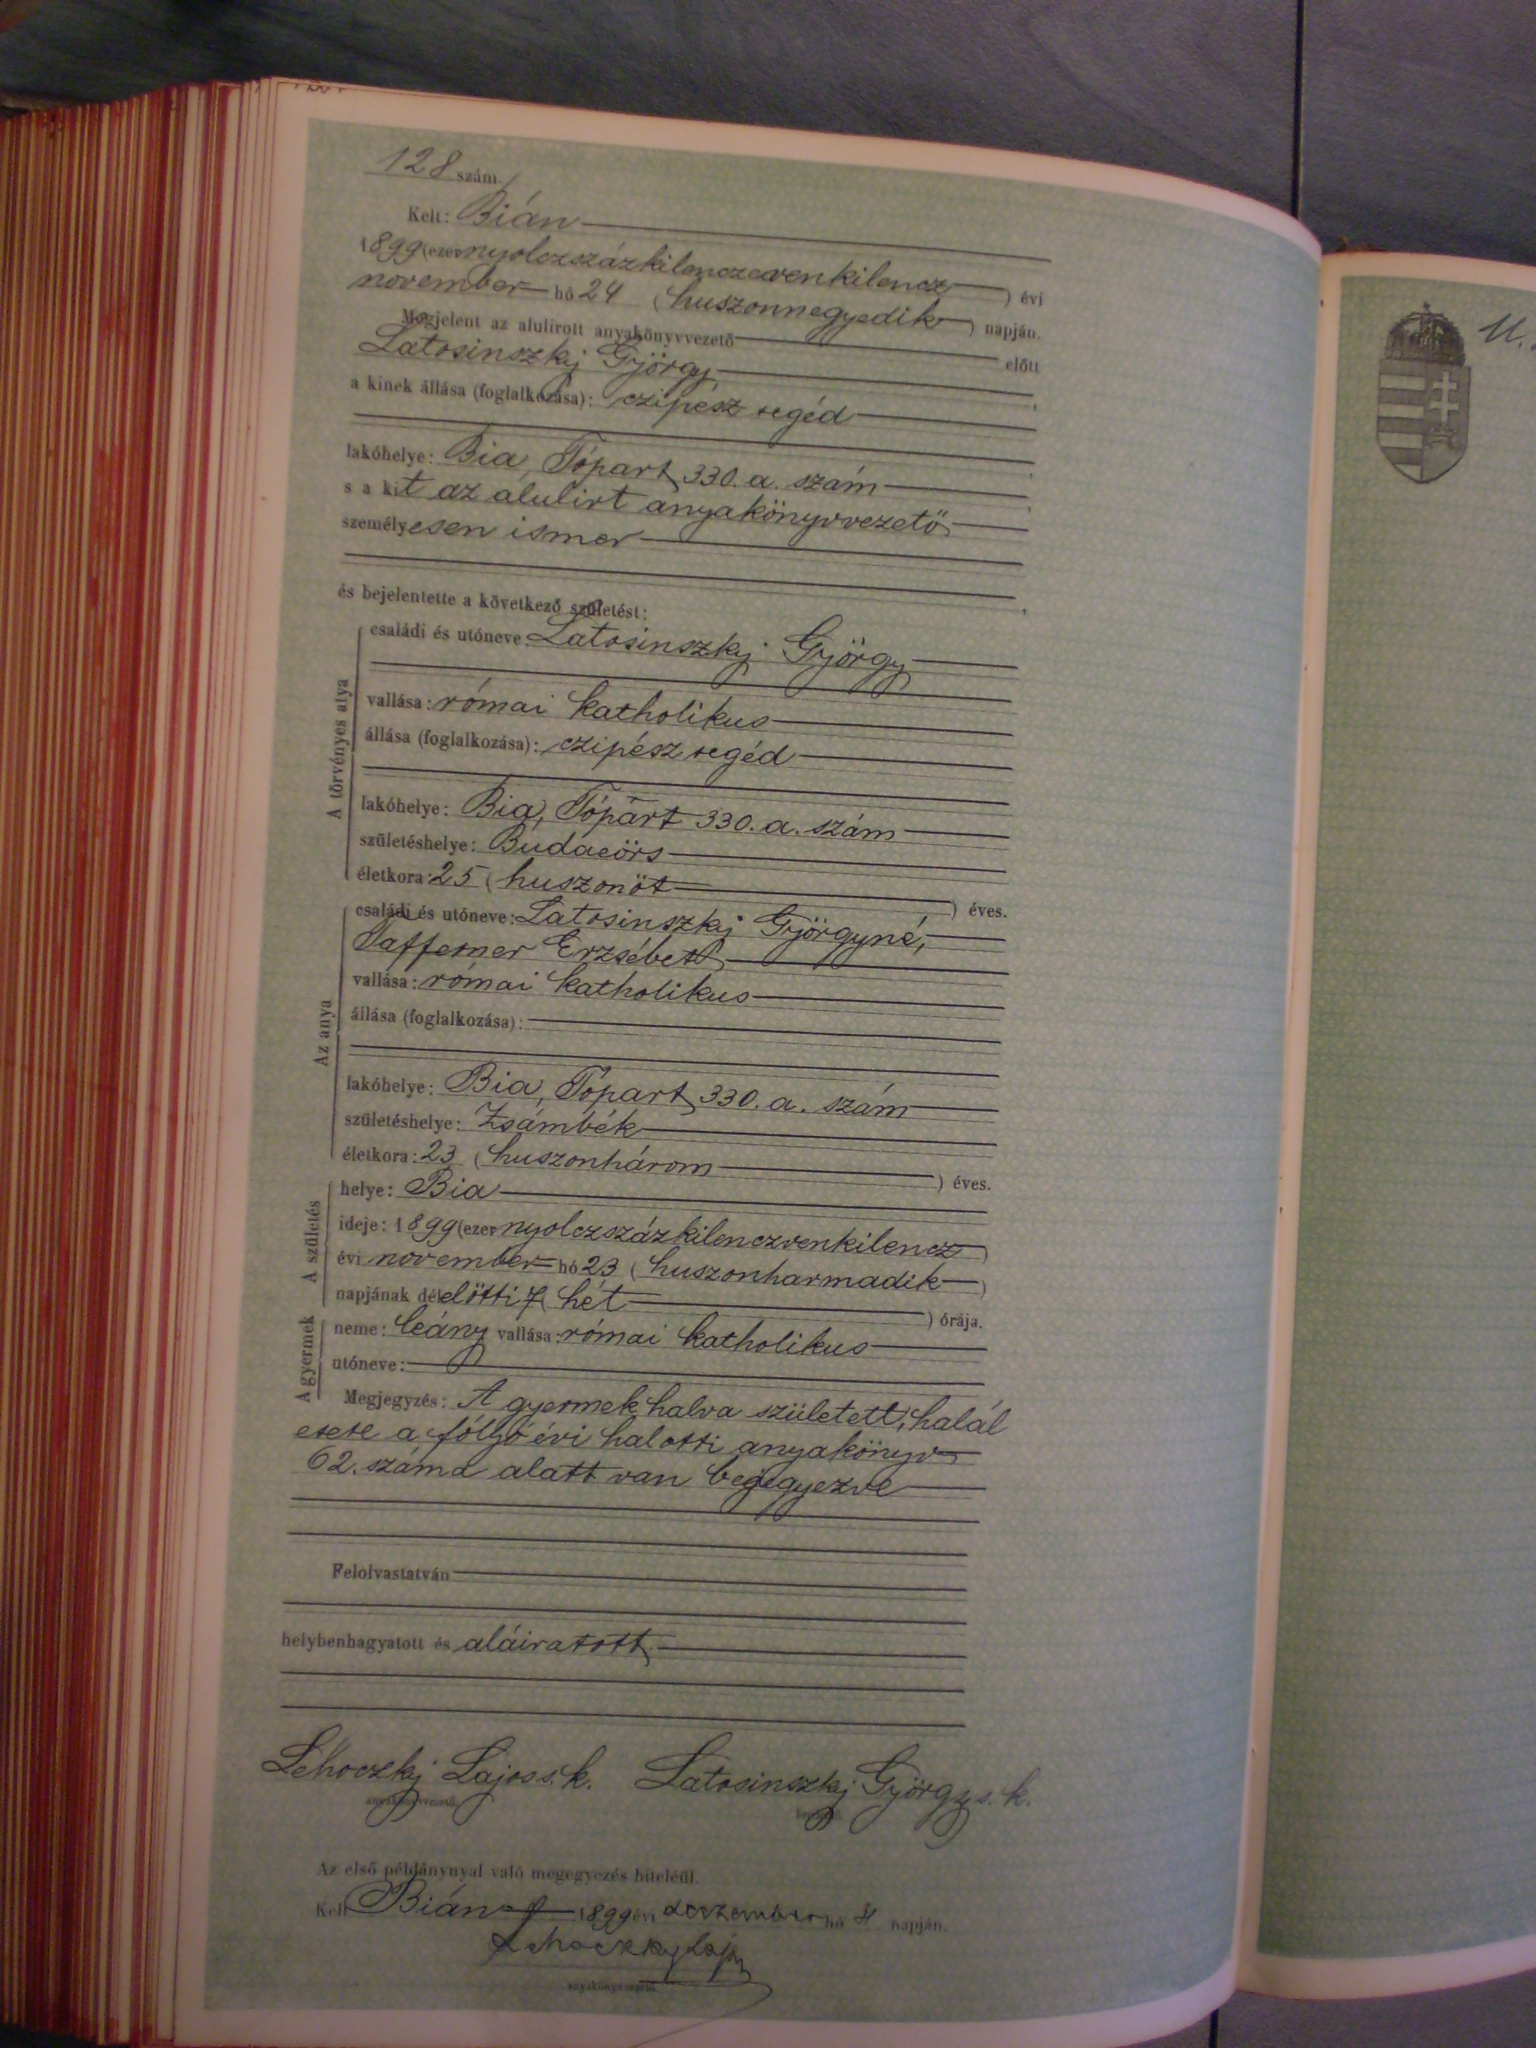 128 szám.
Kelt: Bián
1899 (ezernyolczszázkilenczvenkilencz) évi
november hó 24 (huszonnegyedik) napján.
Megjelent az alulirott anyakönyvvezető előtt
Latosinszky György
a kinek állása (foglalkozása): czipész segéd
lakóhelye: Bia, Tópart 330. a. szám
s a kit az alulirt anyakönyvvezető
személyesen ismer
és bejelentette a következő születést:
A törvényes atya
családi és utóneve: Latosinszky György
vallása: római katholikus
állása (foglalkozása): czipész segéd
lakóhelye: Bia, Tópart 330. a. szám
születéshelye: Budaeörs
életkora: 25 (huszonöt) éves.
Az anya
családi és utóneve: Latosinszky Györgyné,
Taffemer Erzsébet
vallása: római katholikus
állása (foglalkozása):
lakóhelye: Bia, Tópart 330. a. szám
születéshelye: Zsámbék
életkora: 23 (huszonhárom) éves.
A születés
helye: Bia
ideje: 1899 (ezernyolczszázkilenczvenkilencz)
évi november hó 23 (huszonharmadik)
napjának délelőtti 7 (hét) órája.
A gyermek
neme: leány vallása: római katholikus
utóneve:
Megjegyzés: A gyermek halva született, halál
esete a folyó évi halotti anyakönyv
62. száma alatt van bejegyezve
Felolvastatván
helybenhagyatott és aláiratott
Lehoczky Lajos s. k. Latosinszky György s. k.
anyakönyvvezető.
Az első példánynyal való megegyezés hiteléül.
Kelt Bián 1899 évi deczember hó napján.
Lehoczky Lajos
anyakönyvvezető.